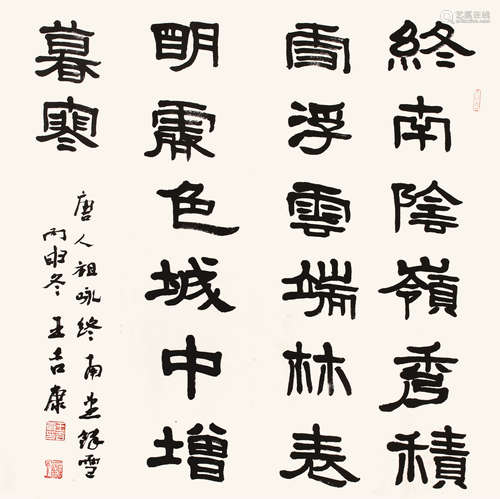 終南陰嶺秀積
雪浮雲端林表
明霽色城中增
暮寒
唐人祖咏終南望餘雪
丙申冬王吉康